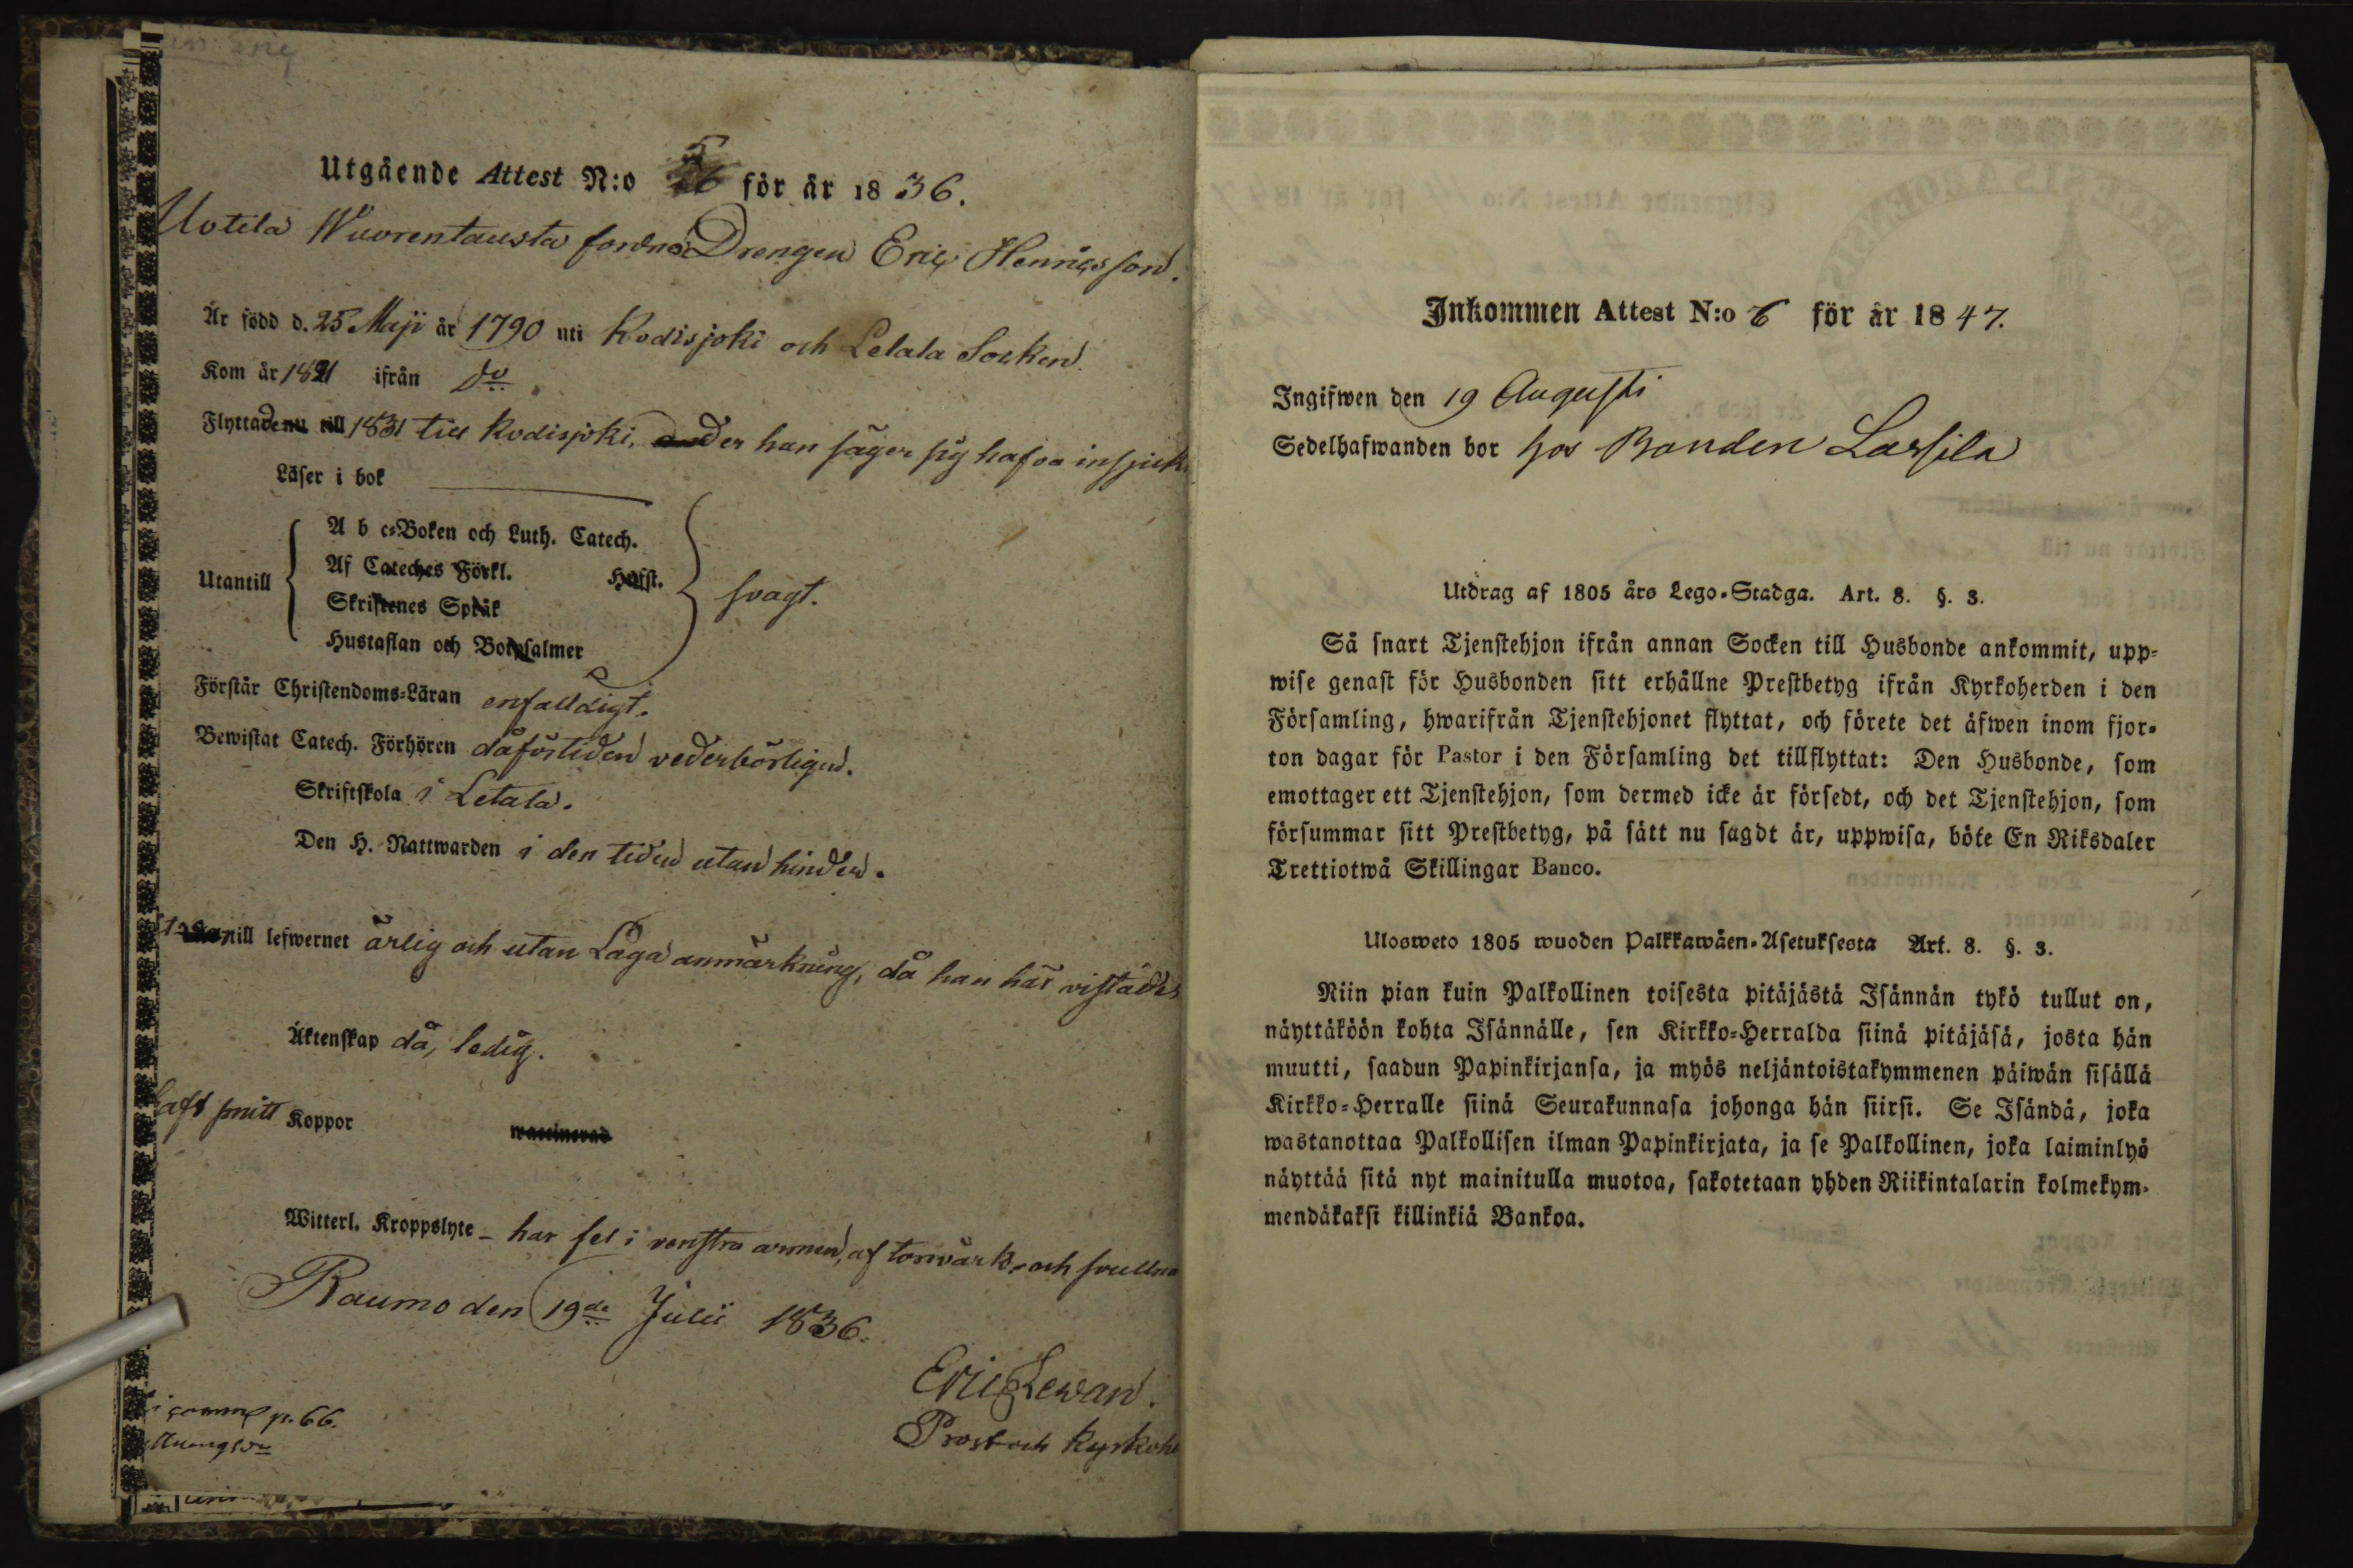 Utgående Attest N:o 5 för år 1836.
Uotila Wuorentausta fordna Drengen Eric Henricsson.
Är född d. 25 Maji år 1790 uti Kodisjoki och Letala Socken.
Kom år 1821 ifrån do
Flyttade 1831 till Kodisjoki, der han säger sig hafva
Läser i bok
A b c-Boken och Luth. Catech.
Af Cateches Förkl. Hufst.
Utantill
svagt.
Skriftenes Språk
Hustaflan och Botpsalmer
Förstår Christendoms-Läran enfaldigt.
Bewistat Catech. Förhören då för tiden vederbörligen.
Skriftskola i Letala.
Den H. Nattwarden i den tiden utan hinder.
till lefwernet ärlig och utan Laga anmärkning, då han här vistades
Äktenskap då, ledig.
haft Koppor waccinerad
Witterl. Kroppslyte - har fel i venstra armen, af torrvärk och
Raumo den 19de Julii 1836.
Eric Lewan.
Prost och Kyrkohe
p. 66.
Inkommen Attest N:o 6 för år 1847.
Ingifwen den 19 Augusti
Sedelhafwanden bor hos Bonden Lassila
Utdrag af 1805 års Lego-Stadga. Art. 8. §. 3.
Så snart Tjenstehjon ifrån annan Socken till Husbonde ankommit, upp-
wise genast för Husbonden sitt erhållne Prestbetyg ifrån Kyrkoherden i den
Församling, hwarifrån Tjenstehjonet flyttat, och förete det äfwen inom fjor-
ton dagar för Pastor i den Församling det tillflyttat: Den Husbonde, som
emottager ett Tjenstehjon, som dermed icke är försedt, och det Tjenstehjon, som
försummar sitt Prestbetyg, på sätt nu sagdt är, uppwisa, böte En Riksdaler
Trettiotwå Skillingar Banco.
Ulosweto 1805 wuoden Palkkawäen-Asetuksesta Art. 8. §. 3.
Niin pian kuin Palkollinen toisesta pitäjästä Isännän tykö tullut on,
näyttäköön kohta Isännälle, sen Kirkko-Herralda siinä pitäjäsä, josta hän
muutti, saadun Papinkirjansa, ja myös neljäntoistakymmenen päiwän sisällä
Kirkko-Herralle siinä Seurakunnasa johonga hän siirsi. Se Isändä, joka
wastanottaa Palkollisen ilman Papinkirjata, ja se Palkollinen, joka laiminlyö
näyttää sitä nyt mainitulla muotoa, sakotetaan yhden Riikintalarin kolmekym-
mendäkaksi killinkiä Bankoa.